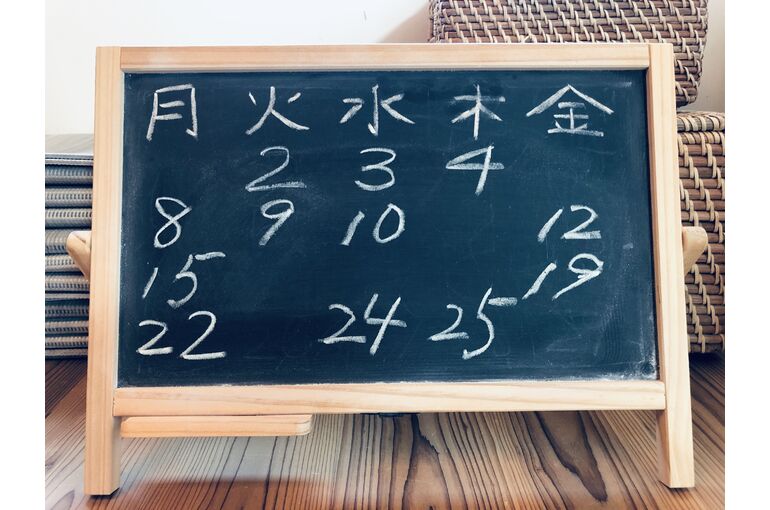 月 火 水 木 金
2 3 4
8 9 10 12
15 19
22 24 25